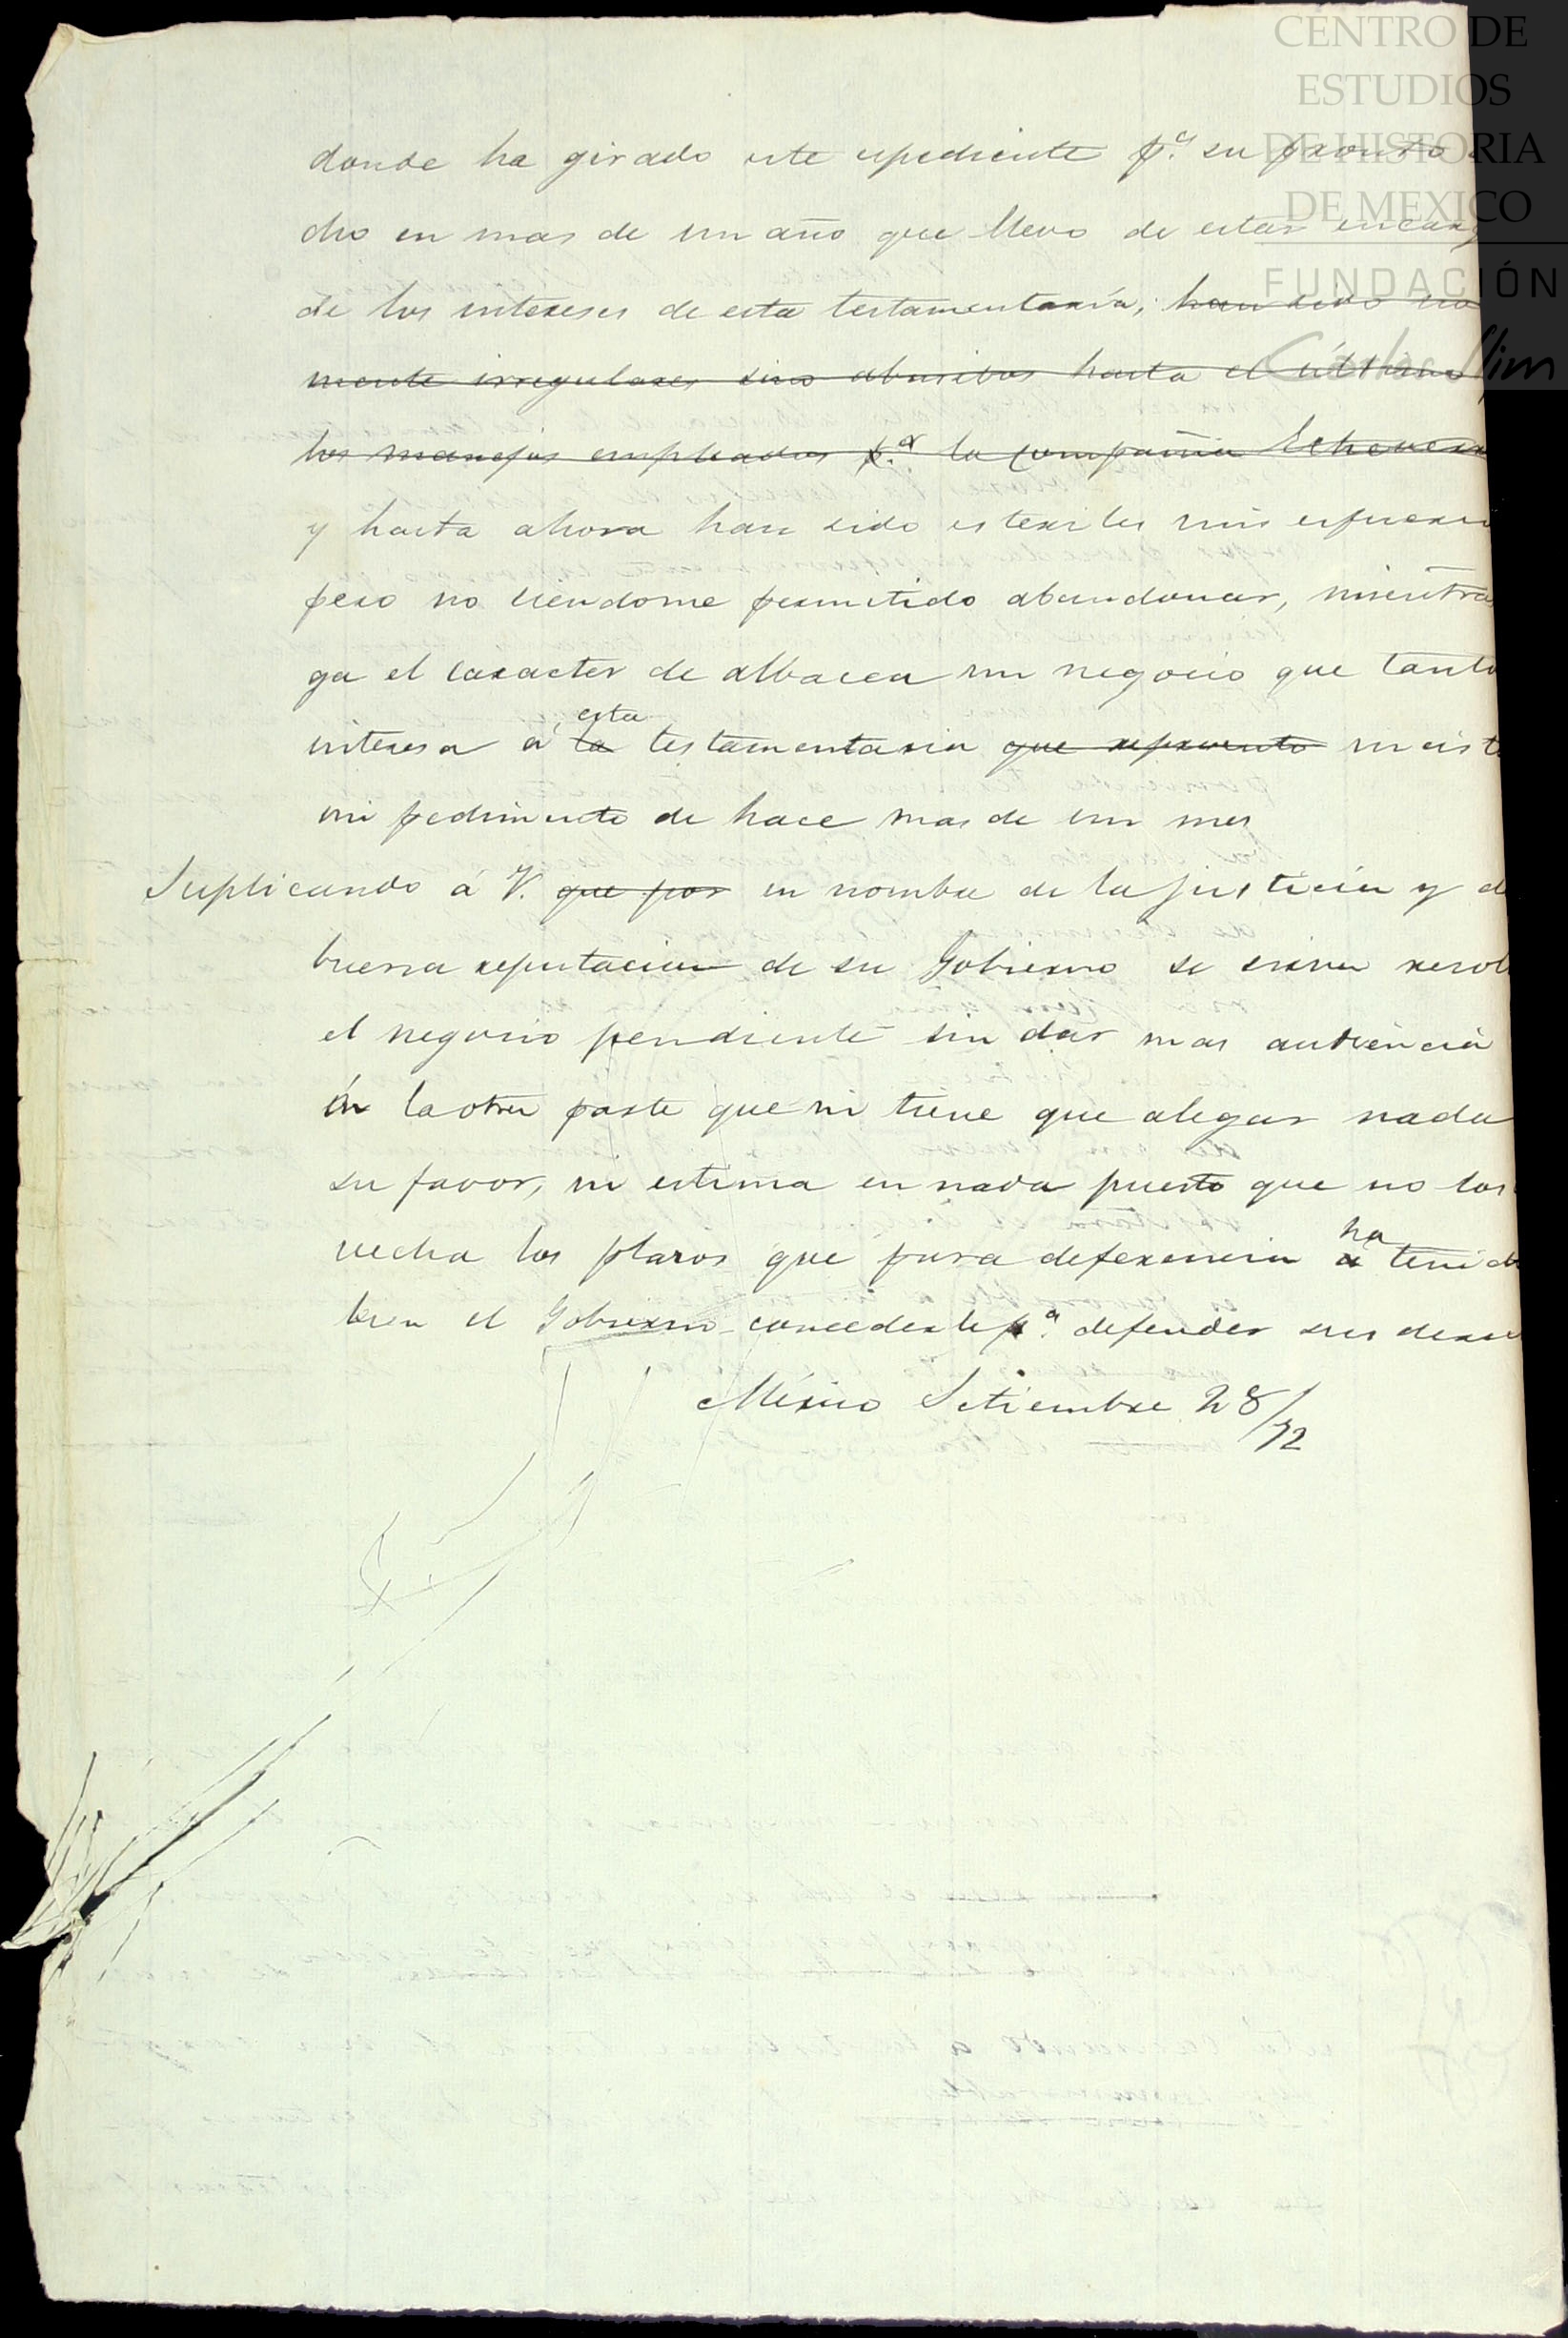 CENTRO DE
ESTUDIOS
DE HISTORIA
DE MEXICO
FUNDACIÓN
Carlos Slim
donde ha girado este espediente p.ª su pronto
cho en mas de un año que llevo de estar encarg
de los intereses de esta testamentaría, han sido no
mente irregulares sino abusibos hasta el último
los manejos empleados p.r la compañia Echever
y hasta ahora han sido esteriles mis esfuerzo
pero no siendome permitido abandonar, mientras
ga el caracter de albacea un negocio que tanto
interesa á la esta testamentaria que represento insist
mi pedimento de hace mas de un mes
Suplicando á V. que por en nombre de la justicia y d
buena reputacion de su Gobierno se sirva resol
el negocio pendiente sin dar mas audiencia
la otra parte que ni tiene que alegar nada
su favor, ni estima en nada puesto que no los
vecha los plazos que pura deferencia ha tenido
bien el Gobierno concederle p.ª defender sus derec
México Setiembre 28/72